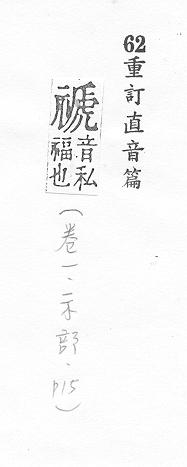 62重訂直音篇
禠
音私
福也
（卷一．示部．p15）